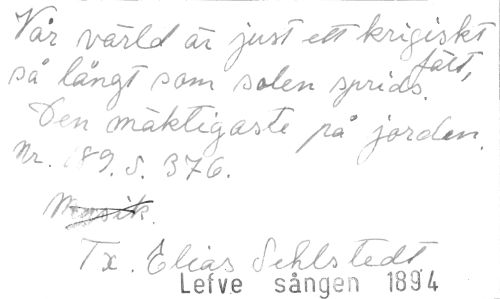 Vår värld är just ett krigiskt
fält,
så långt som solen sprids.
Den mäktigaste på jorden.
Nr. 189. S. 376.
Musik.
Tx. Elias Sehlstedt
Lefve sången 1894